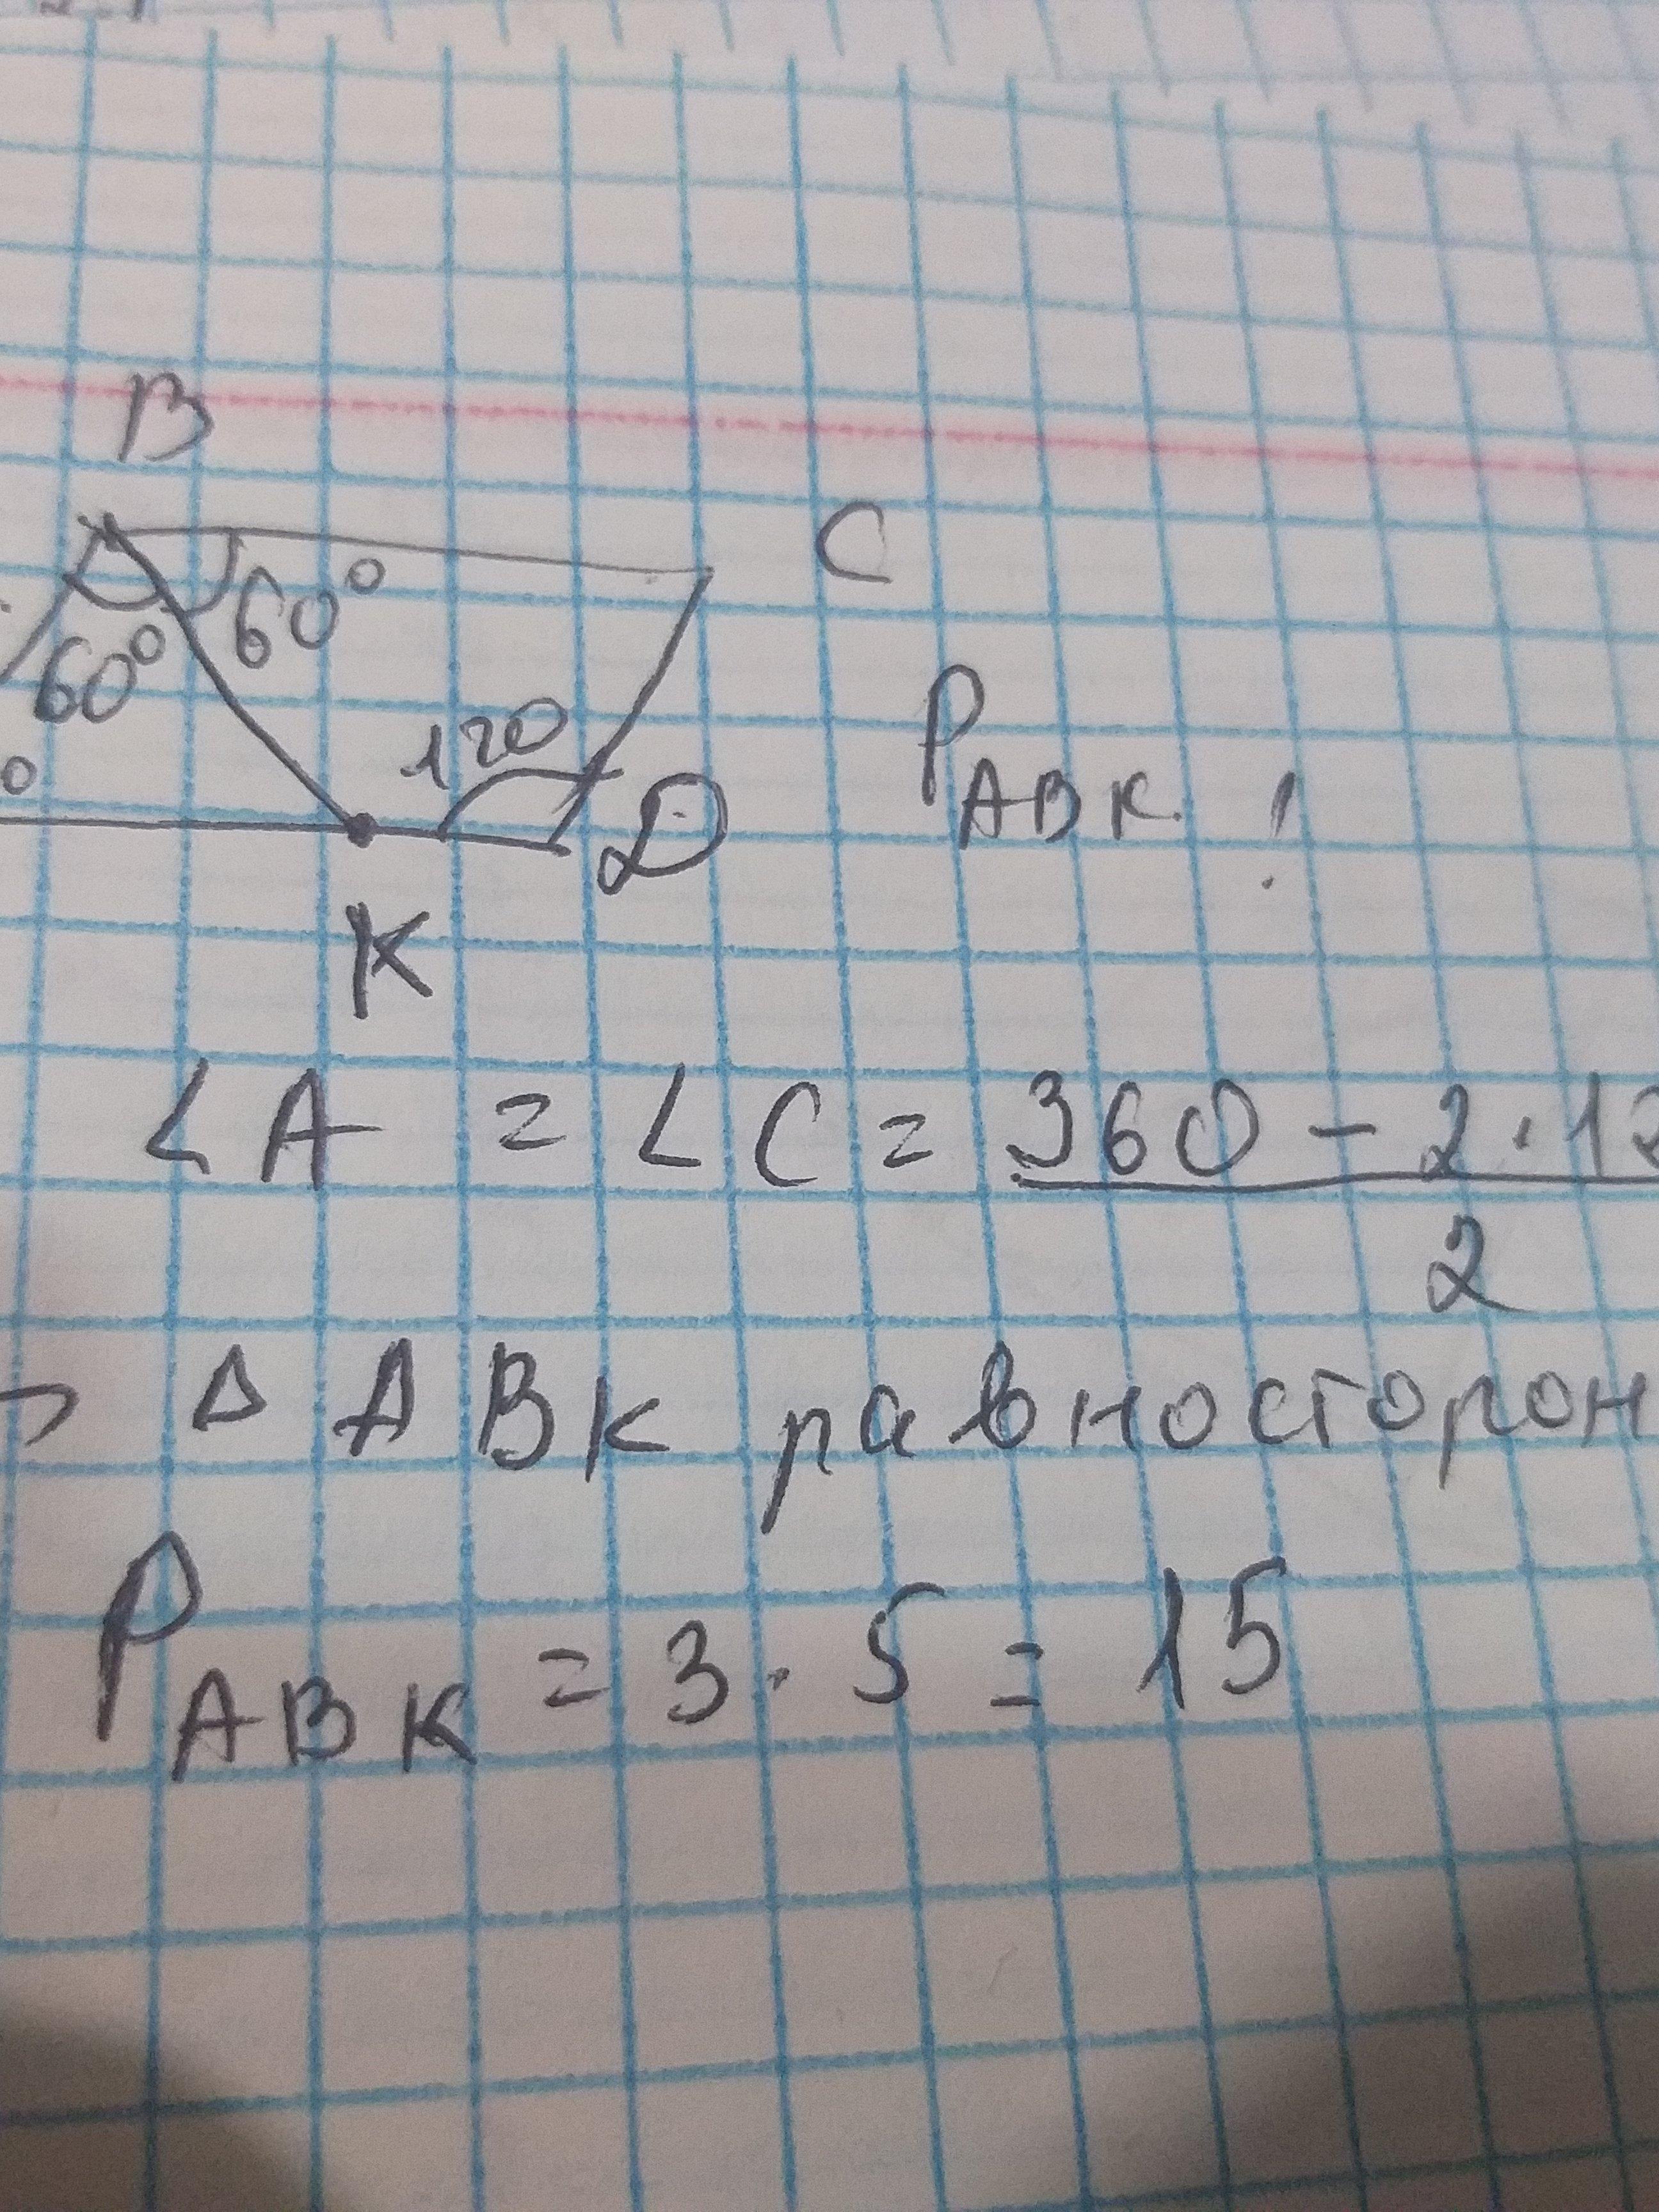 B
C
60°
60°
120
°
D
P ABK !
K
∠A = ∠C = 360 - 2·12
2
Δ ABK равносторон
P ABK = 3·5 = 15